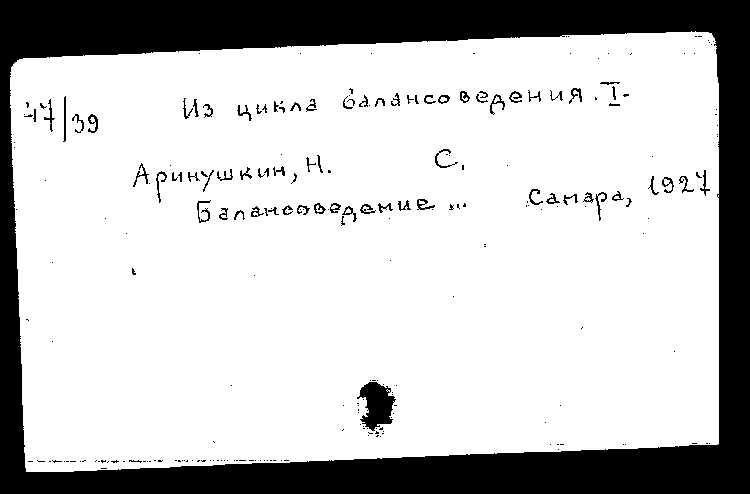 47/39 Из цикла балансоведения. I.
Аринушкин, Н. С.
Балансоведение ... Самара, 1927.